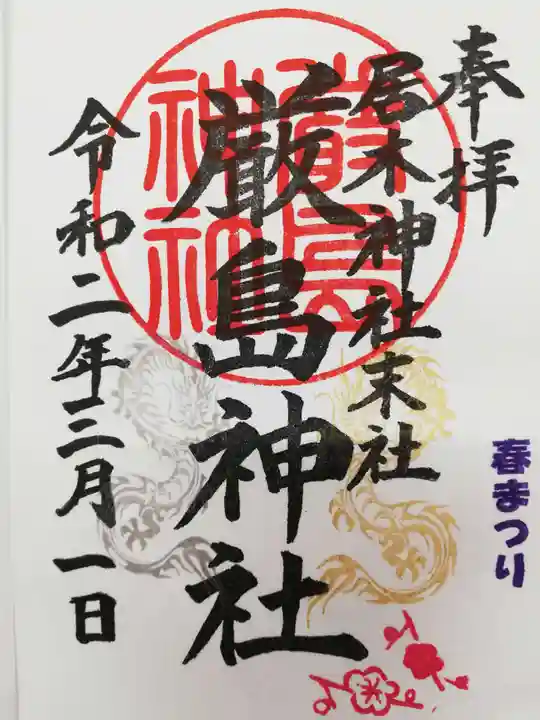 奉拝
春まつり
居木神社末社
厳島神社
厳島神社
令和二年三月一日